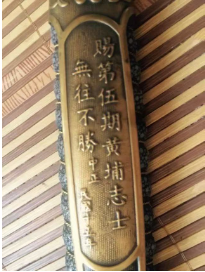 赐第伍期黄埔志士
無往不勝 中正